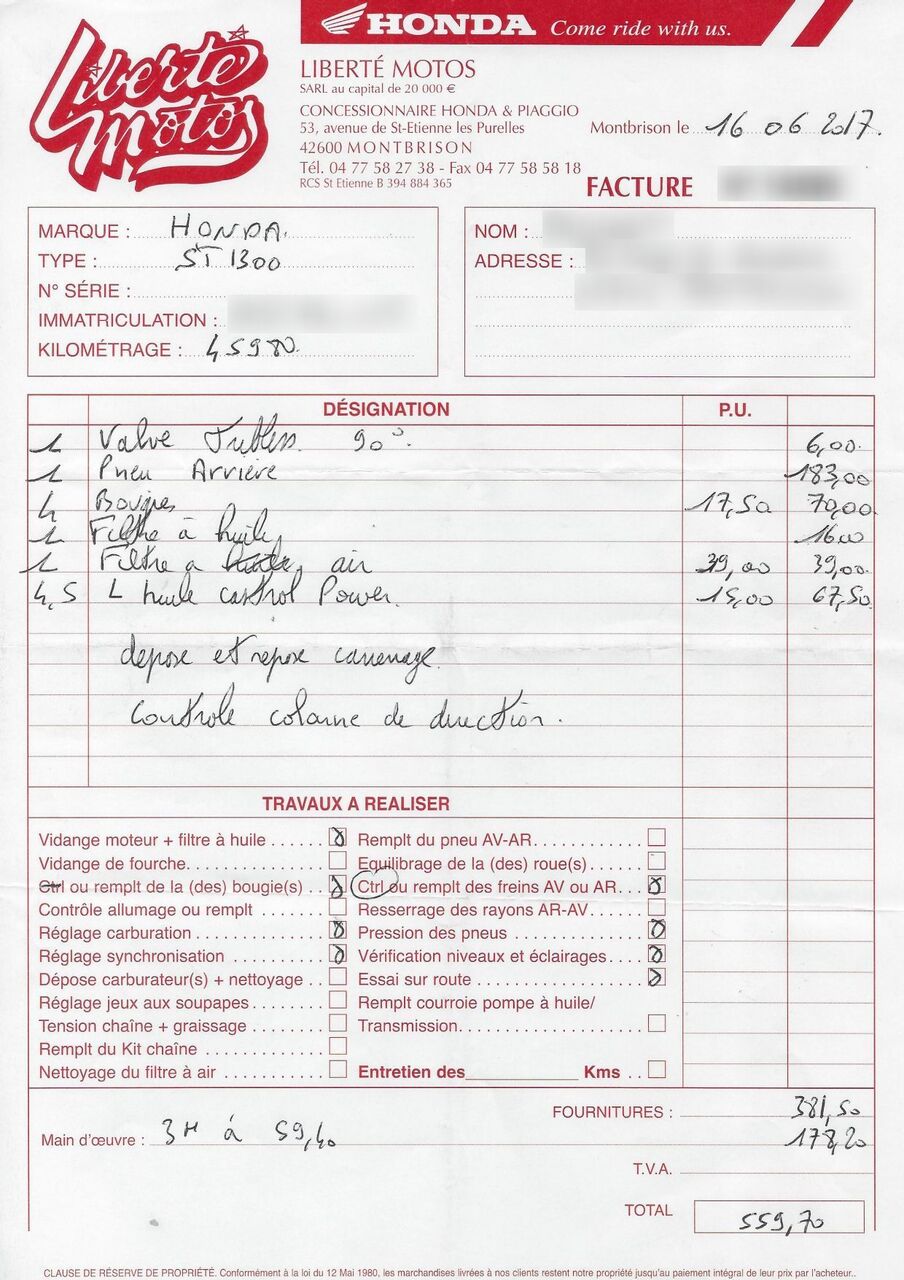 Liberté motos
HONDA Come ride with us.
LIBERTÉ MOTOS
SARL au capital de 20 000 €
CONCESSIONNAIRE HONDA & PIAGGIO
53, avenue de St-Etienne les Purelles
42600 MONTBRISON
Tél. 04 77 58 27 38 - Fax 04 77 58 58 18
RCS St Etienne B 394 884 365
Montbrison le 16 06 2017.
FACTURE
MARQUE : HONDA.
TYPE : ST 1300
N° SÉRIE :
IMMATRICULATION :
KILOMÉTRAGE : 45980.
NOM :
ADRESSE :
DÉSIGNATION P.U.
1 Valve Tubless. 90°. 6,00.
1 Pneu Arrière 183,00
4 Bougies 17,50 70,00
1 Filtre à huile 16,00
1 Filtre a air 39,00 39,00.
4,5 L huile castrol Power. 15,00 67,50
depose et repose carenage.
Controle colonne de direction.
TRAVAUX A REALISER
Vidange moteur + filtre à huile
Vidange de fourche
Ctrl ou remplt de la (des) bougie(s)
Contrôle allumage ou remplt
Réglage carburation
Réglage synchronisation
Dépose carburateur(s) + nettoyage
Réglage jeux aux soupapes
Tension chaîne + graissage
Remplt du Kit chaîne
Nettoyage du filtre à air
Remplt du pneu AV-AR
Equilibrage de la (des) roue(s)
Ctrl ou remplt des freins AV ou AR
Resserrage des rayons AR-AV
Pression des pneus
Vérification niveaux et éclairages
Essai sur route
Remplt courroie pompe à huile/
Transmission
Entretien des Kms
FOURNITURES : 381,50
Main d'œuvre : 3H à 59,40 178,20
T.V.A.
TOTAL 559,70
CLAUSE DE RÉSERVE DE PROPRIÉTÉ. Conformément à la loi du 12 Mai 1980, les marchandises livrées à nos clients restent notre propriété jusqu'au paiement intégral de leur prix par l'acheteur..